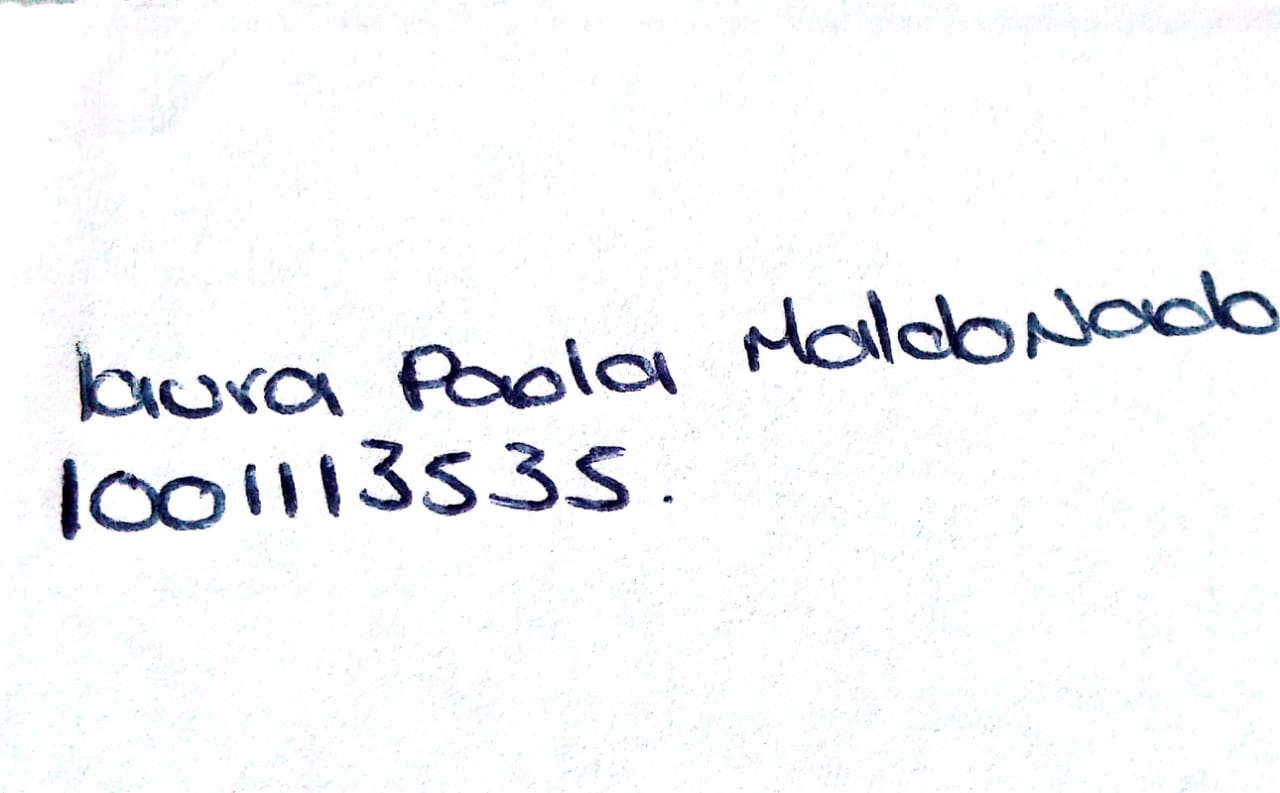 laura Paola MaldoNado
1001113535.